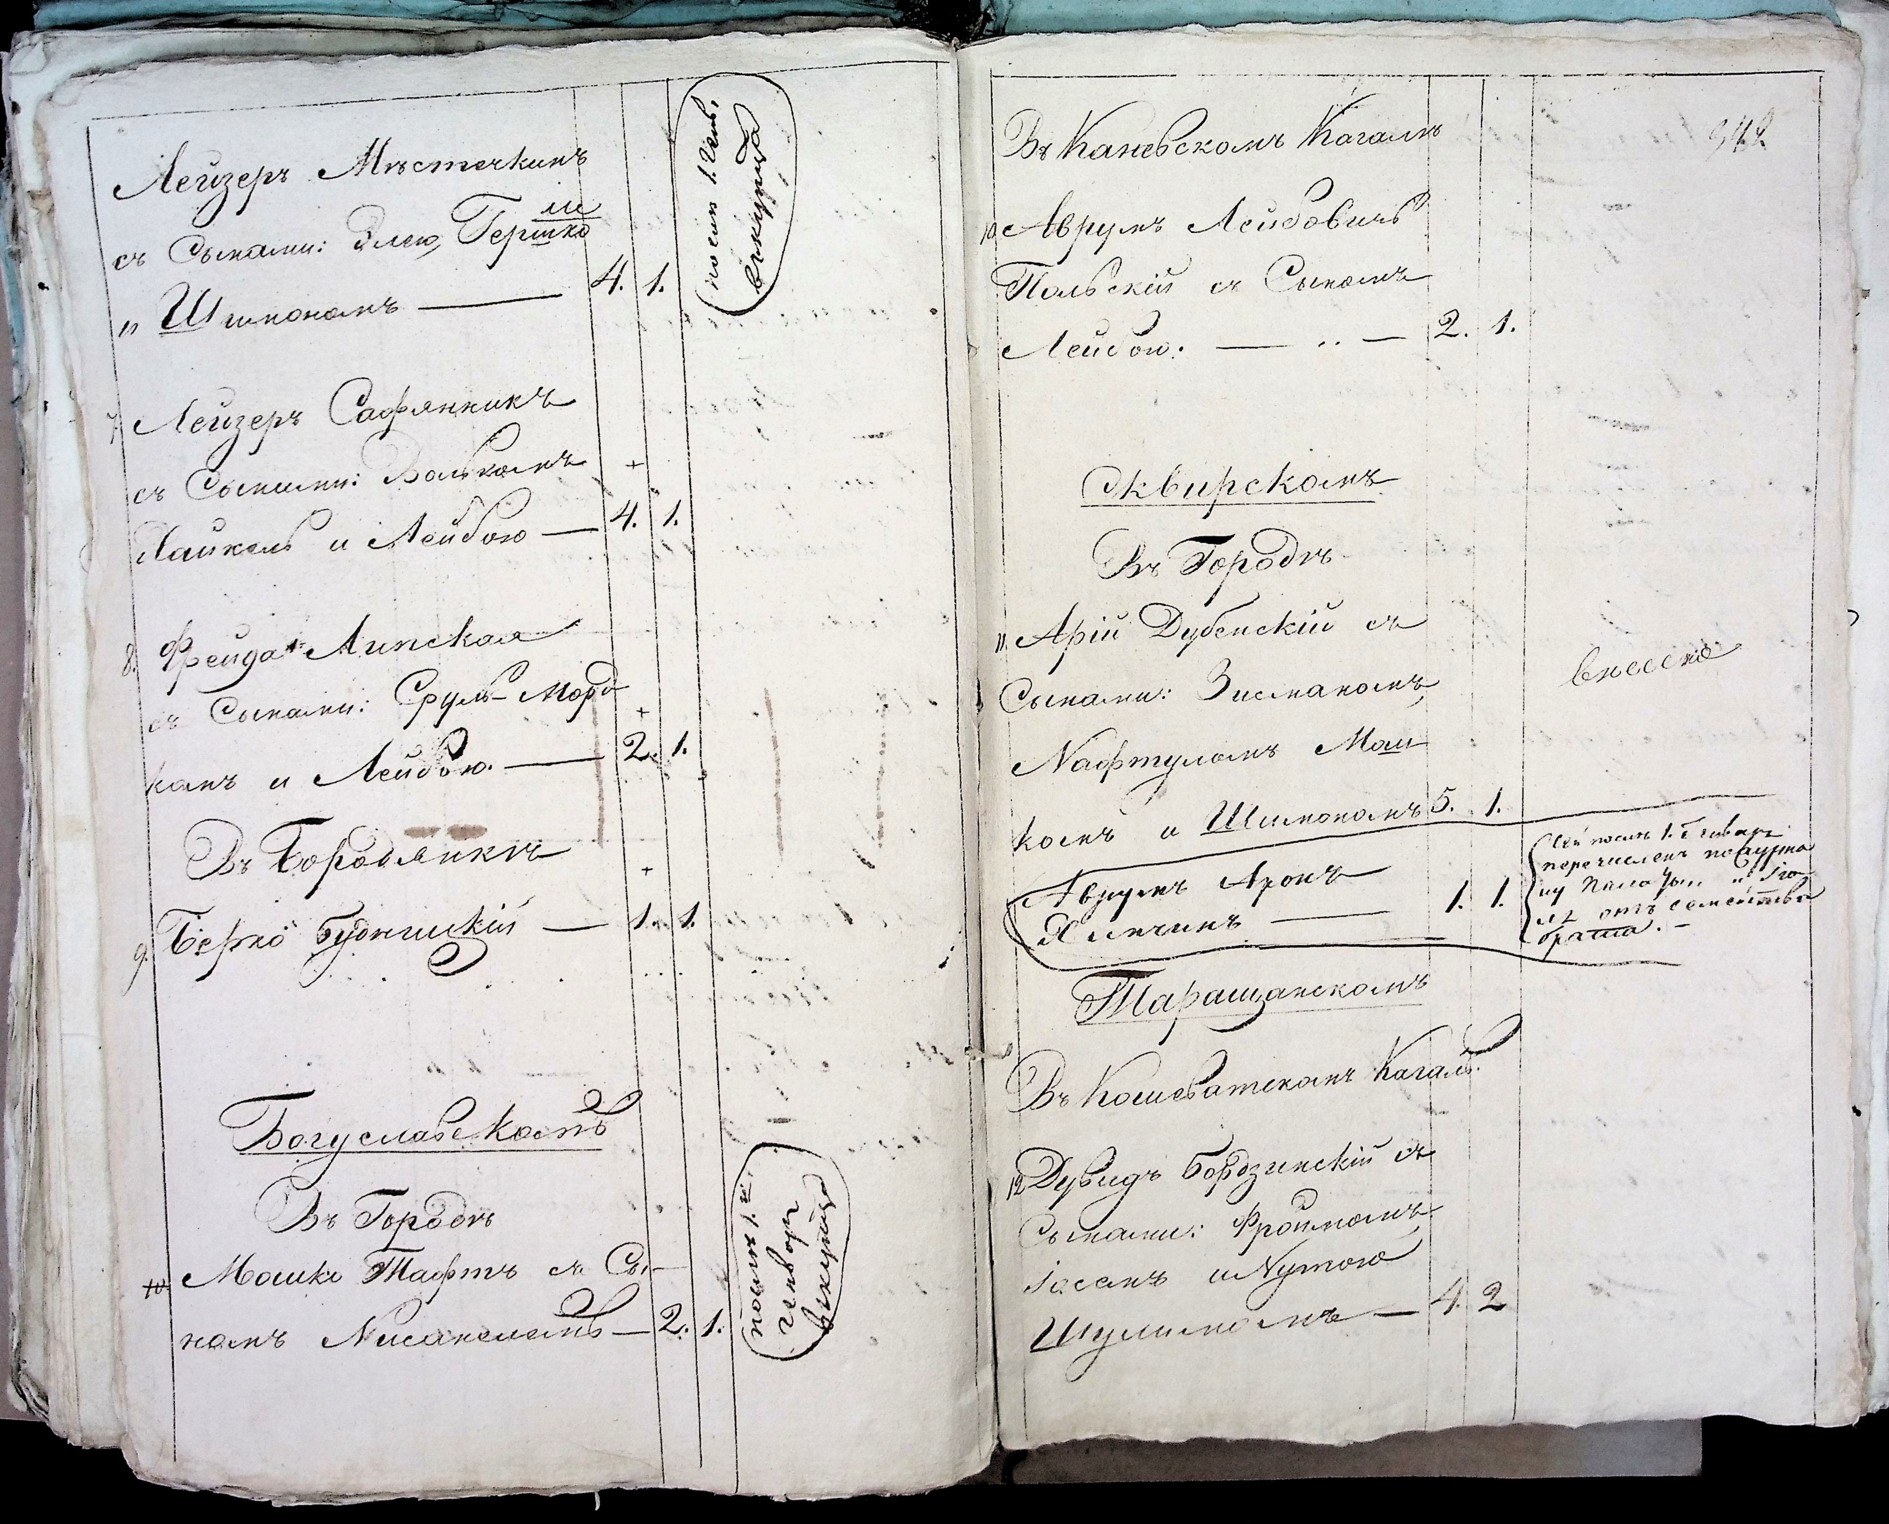 Лейзеръ Местечкинъ
съ Сынами: Элею, Гершко
ми
и Шимономъ — 4. 1.
после 1. Генв.
7. Лейзеръ Сафянникъ
съ Сынами: Волькомъ +
Хайкелъ и Лейбою — 4. 1.
8. Фрейда Липская
съ Сынами: Сруль-Морд +
комъ и Лейбою. — 2. 1.
Въ Бородянкѣ +
9. Берко Будницкій — 1. 1.
Богуславскомъ
Въ Городѣ
10. Мошко Тафтъ съ Сы-
номъ Нисонелемъ — 2. 1.
после 1.го
генваря
942.
Въ Каневскомъ Кагалѣ
10. Аврумъ Лейбовичъ
Польскій съ Сыномъ
Лейбою. — „ — 2. 1.
Сквирскомъ
Въ Городѣ
11. Арій Дубенскій съ
Сынами: Зисманомъ,
Нафтуломъ Маш
комъ и Шимономъ 5. 1.
внесено
Аврумъ Аронъ
Хипчинъ — 1. 1.
после 1. Генваря
перечисленъ по
отъ семейства
брата. —
Таращанскомъ
Въ Кошеватскомъ Кагалѣ.
12. Дувидъ Бордзинскій съ
Сынами: Фроимомъ,
Іосемъ и Нутою
Шулимомъ — 4. 2